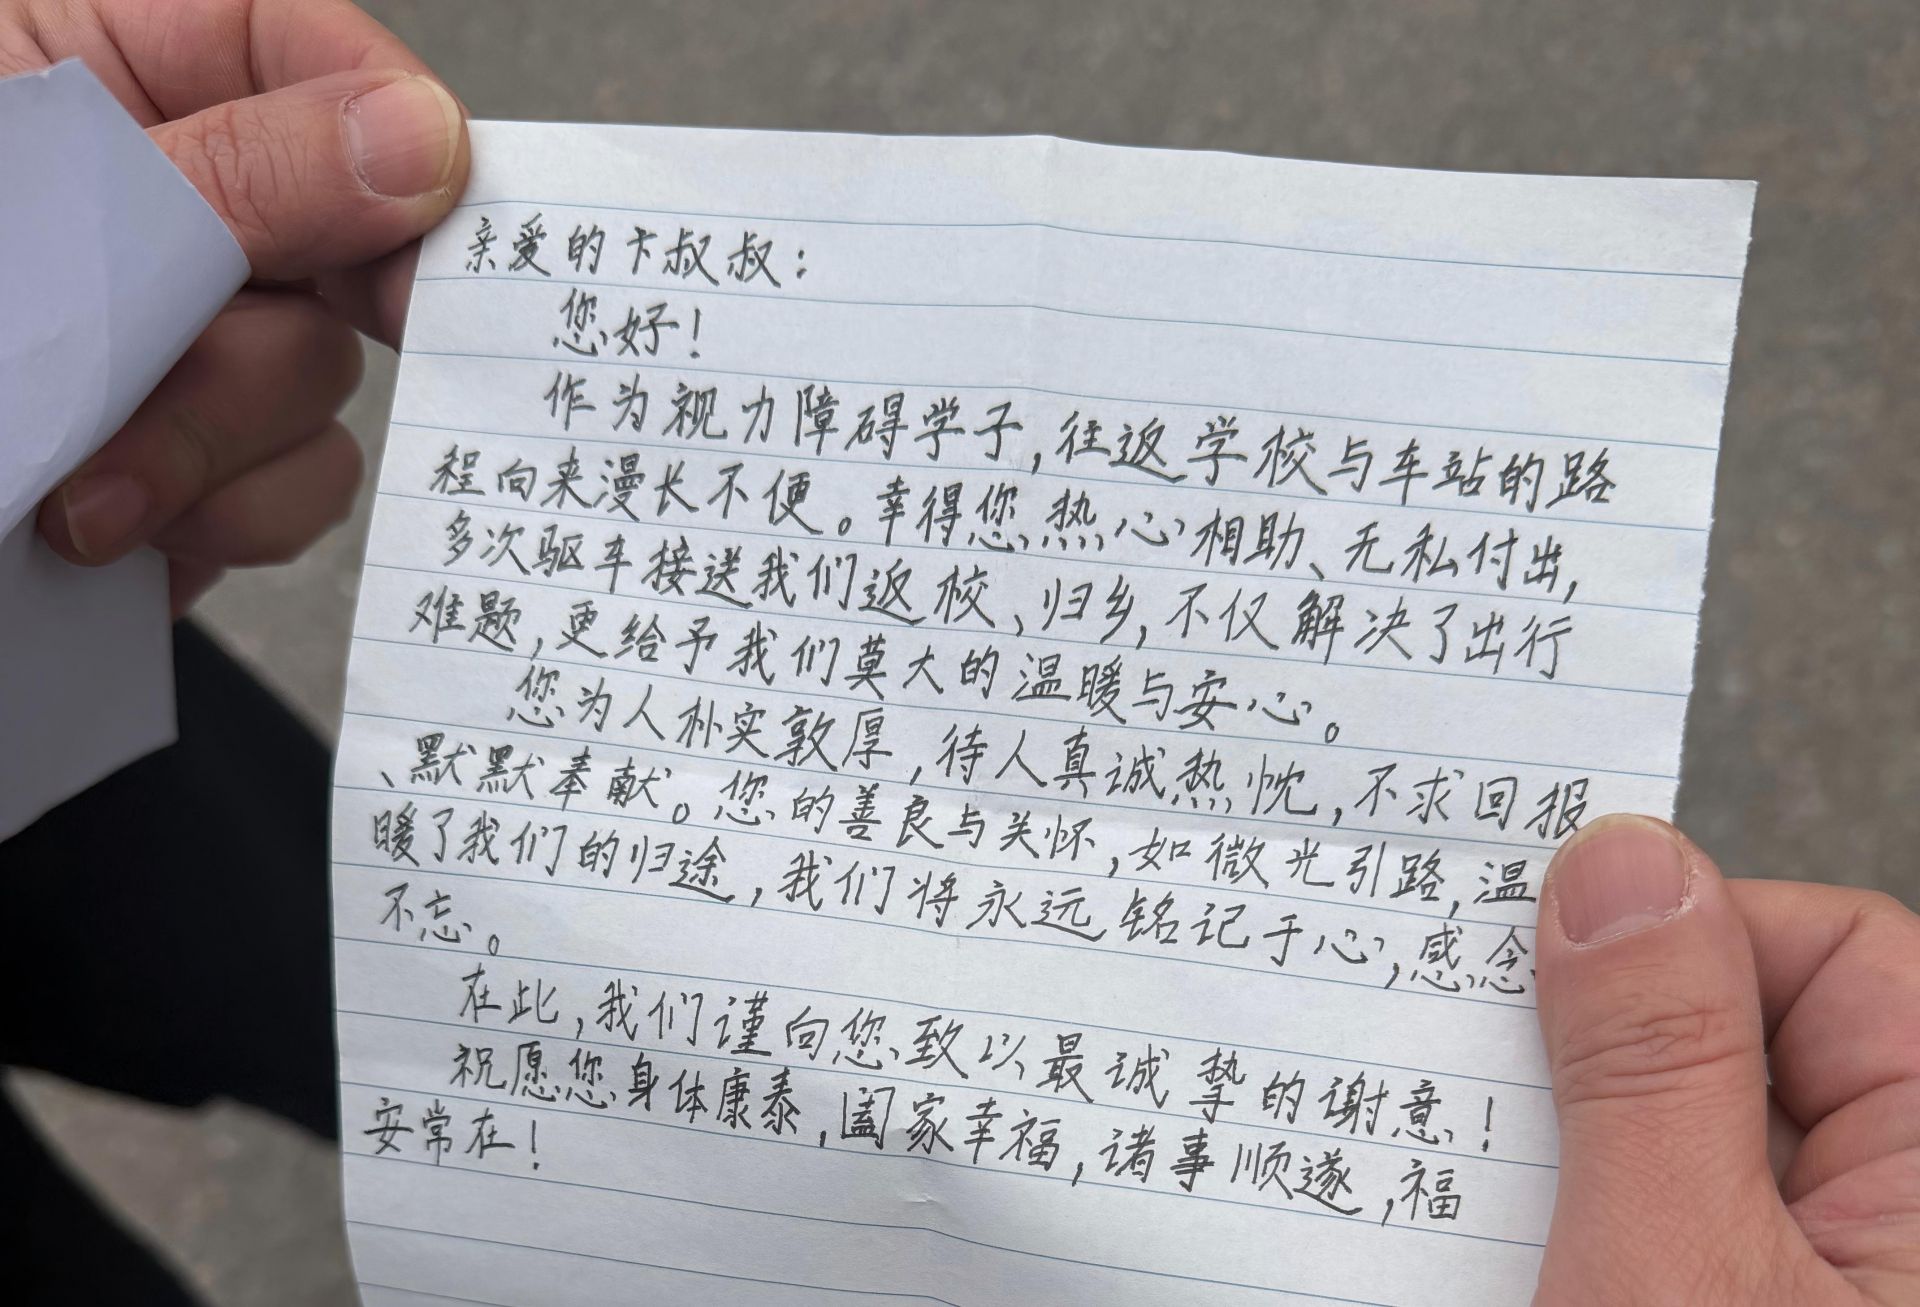 亲爱的卞叔叔：
您好！
作为视力障碍学子，往返学校与车站的路
程向来漫长不便。幸得您热心相助、无私付出，
多次驱车接送我们返校、归乡，不仅解决了出行
难题，更给予我们莫大的温暖与安心。
您为人朴实敦厚，待人真诚热忱，不求回报
、默默奉献。您的善良与关怀，如微光引路，温
暖了我们的归途，我们将永远铭记于心，感念
不忘。
在此，我们谨向您致以最诚挚的谢意！
祝愿您身体康泰，阖家幸福，诸事顺遂，福
安常在！